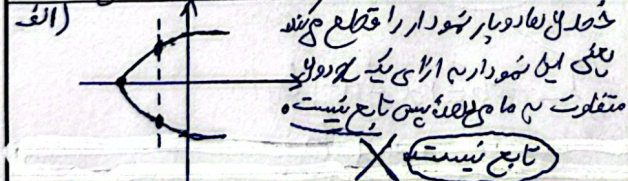 الف)
خط l نما دوبار نمودار را قطع می‌کند
یعنی این نمودار به ازای یک x دو y
متفاوت به ما می‌دهد پس تابع نیست.
تابع نیست